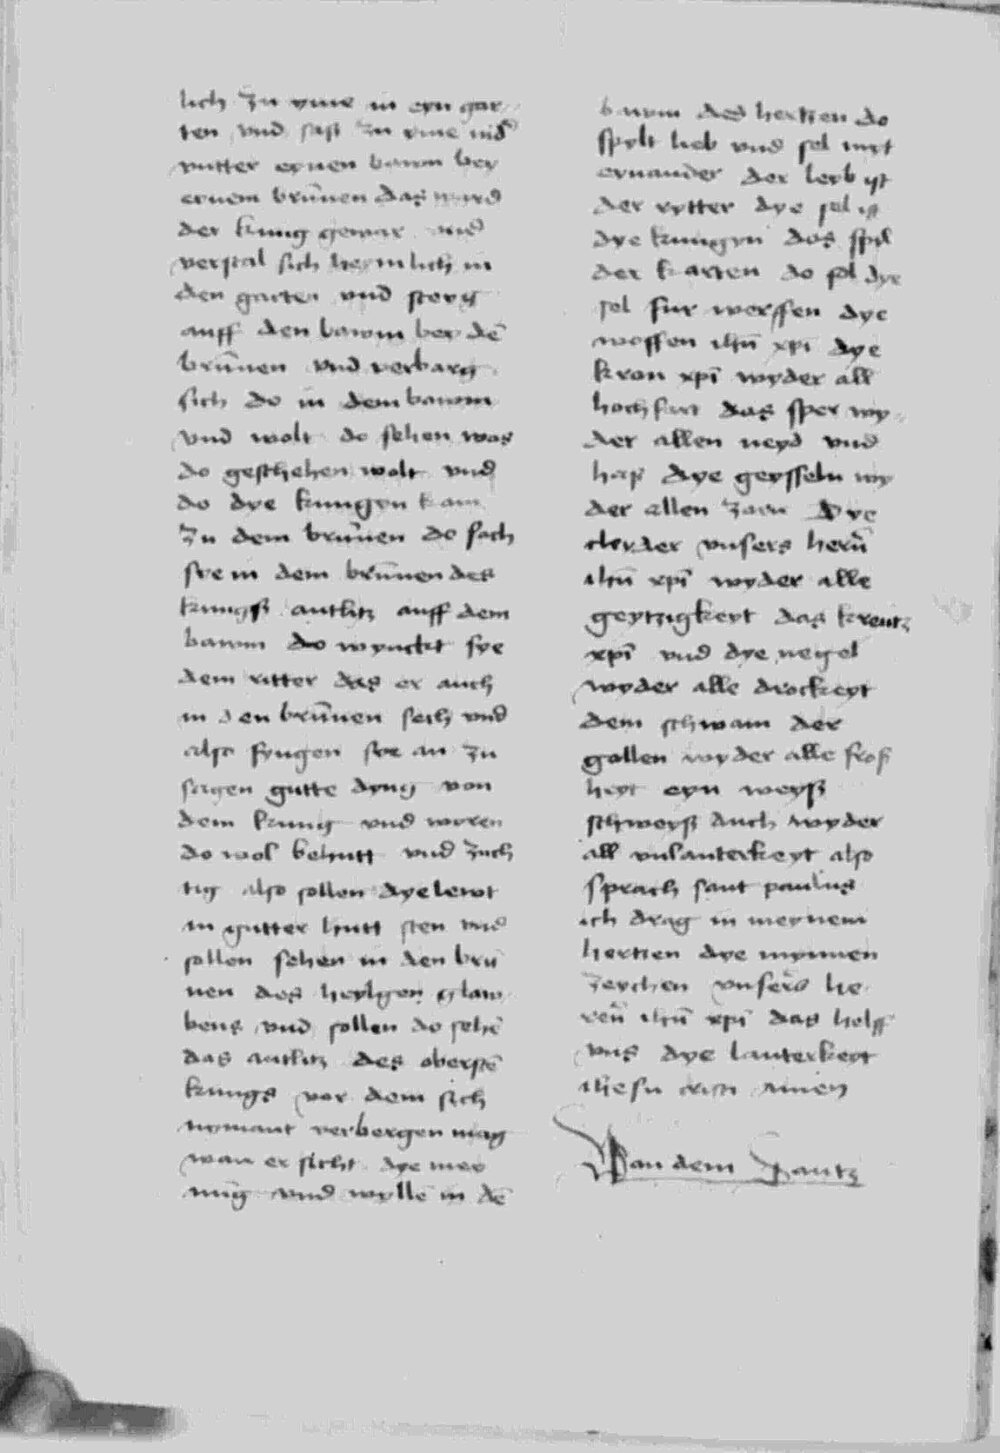 lich zu yme in eyn gar-
ten vnd sast zu yme nid
vntter eynen bawm bey
eynem brūnen das ward
der kunig gewar vnd
verstal sich heymlich in
den garten vnd steyg
auff den bawm bey dē
brūnen vnd verbarg
sich do in dem bawm
vnd wolt do sehen was
do geschehen wolt vnd
do dye kunigyn kam
zu dem brūnen do sach
sye in dem brūnen des
kunigs antlitz auff dem
bawm do wynckt sye
dem ritter das er auch
in den brūnen sech vnd
also fyngen sye an zu
sagen gutte dyng von
dem kunig vnd woren
do wol behutt vnd zuch
tig also sollen dye lewt
in gutter hutt sten vnd
sollen sehen in den brū
nen des heylgen glaw
bens vnd sollen do sehē
das antlitz des oberstē
kunigs vor dem sich
nymant verbergen mag
wan er sicht dye mey
nūg vnd wyllē in dē
bawm des hertzen do
spylt lieb vnd sel myt
eynander der leyb ist
der rytter dye sel ist
dye kunigyn das spil
der karten do sol dye
sel fur werffen dye
woffen ihū xpi dye
kron xpī wyder all
hochfart das sper wy-
der allen neyd vnd
has dye geysseln wy
der allen zorn Dye
cleyder vnsers herū
ihū xpī wyder alle
geytzigkeyt das kreutz
xpī vnd dye negel
wyder alle drockeyt
dem schwam der
gallen wyder alle fros
heyt eyn weyß
schweyß Auch wyder
all vnlauterkeyt also
sprach sant paulus
ich drag in meynem
hertzen dye mynnen
zeychen vnsers he
ren̄ ihū xpī das helff
vns dye lauterkeyt
ihesu cristi amen
Van dem Dantz